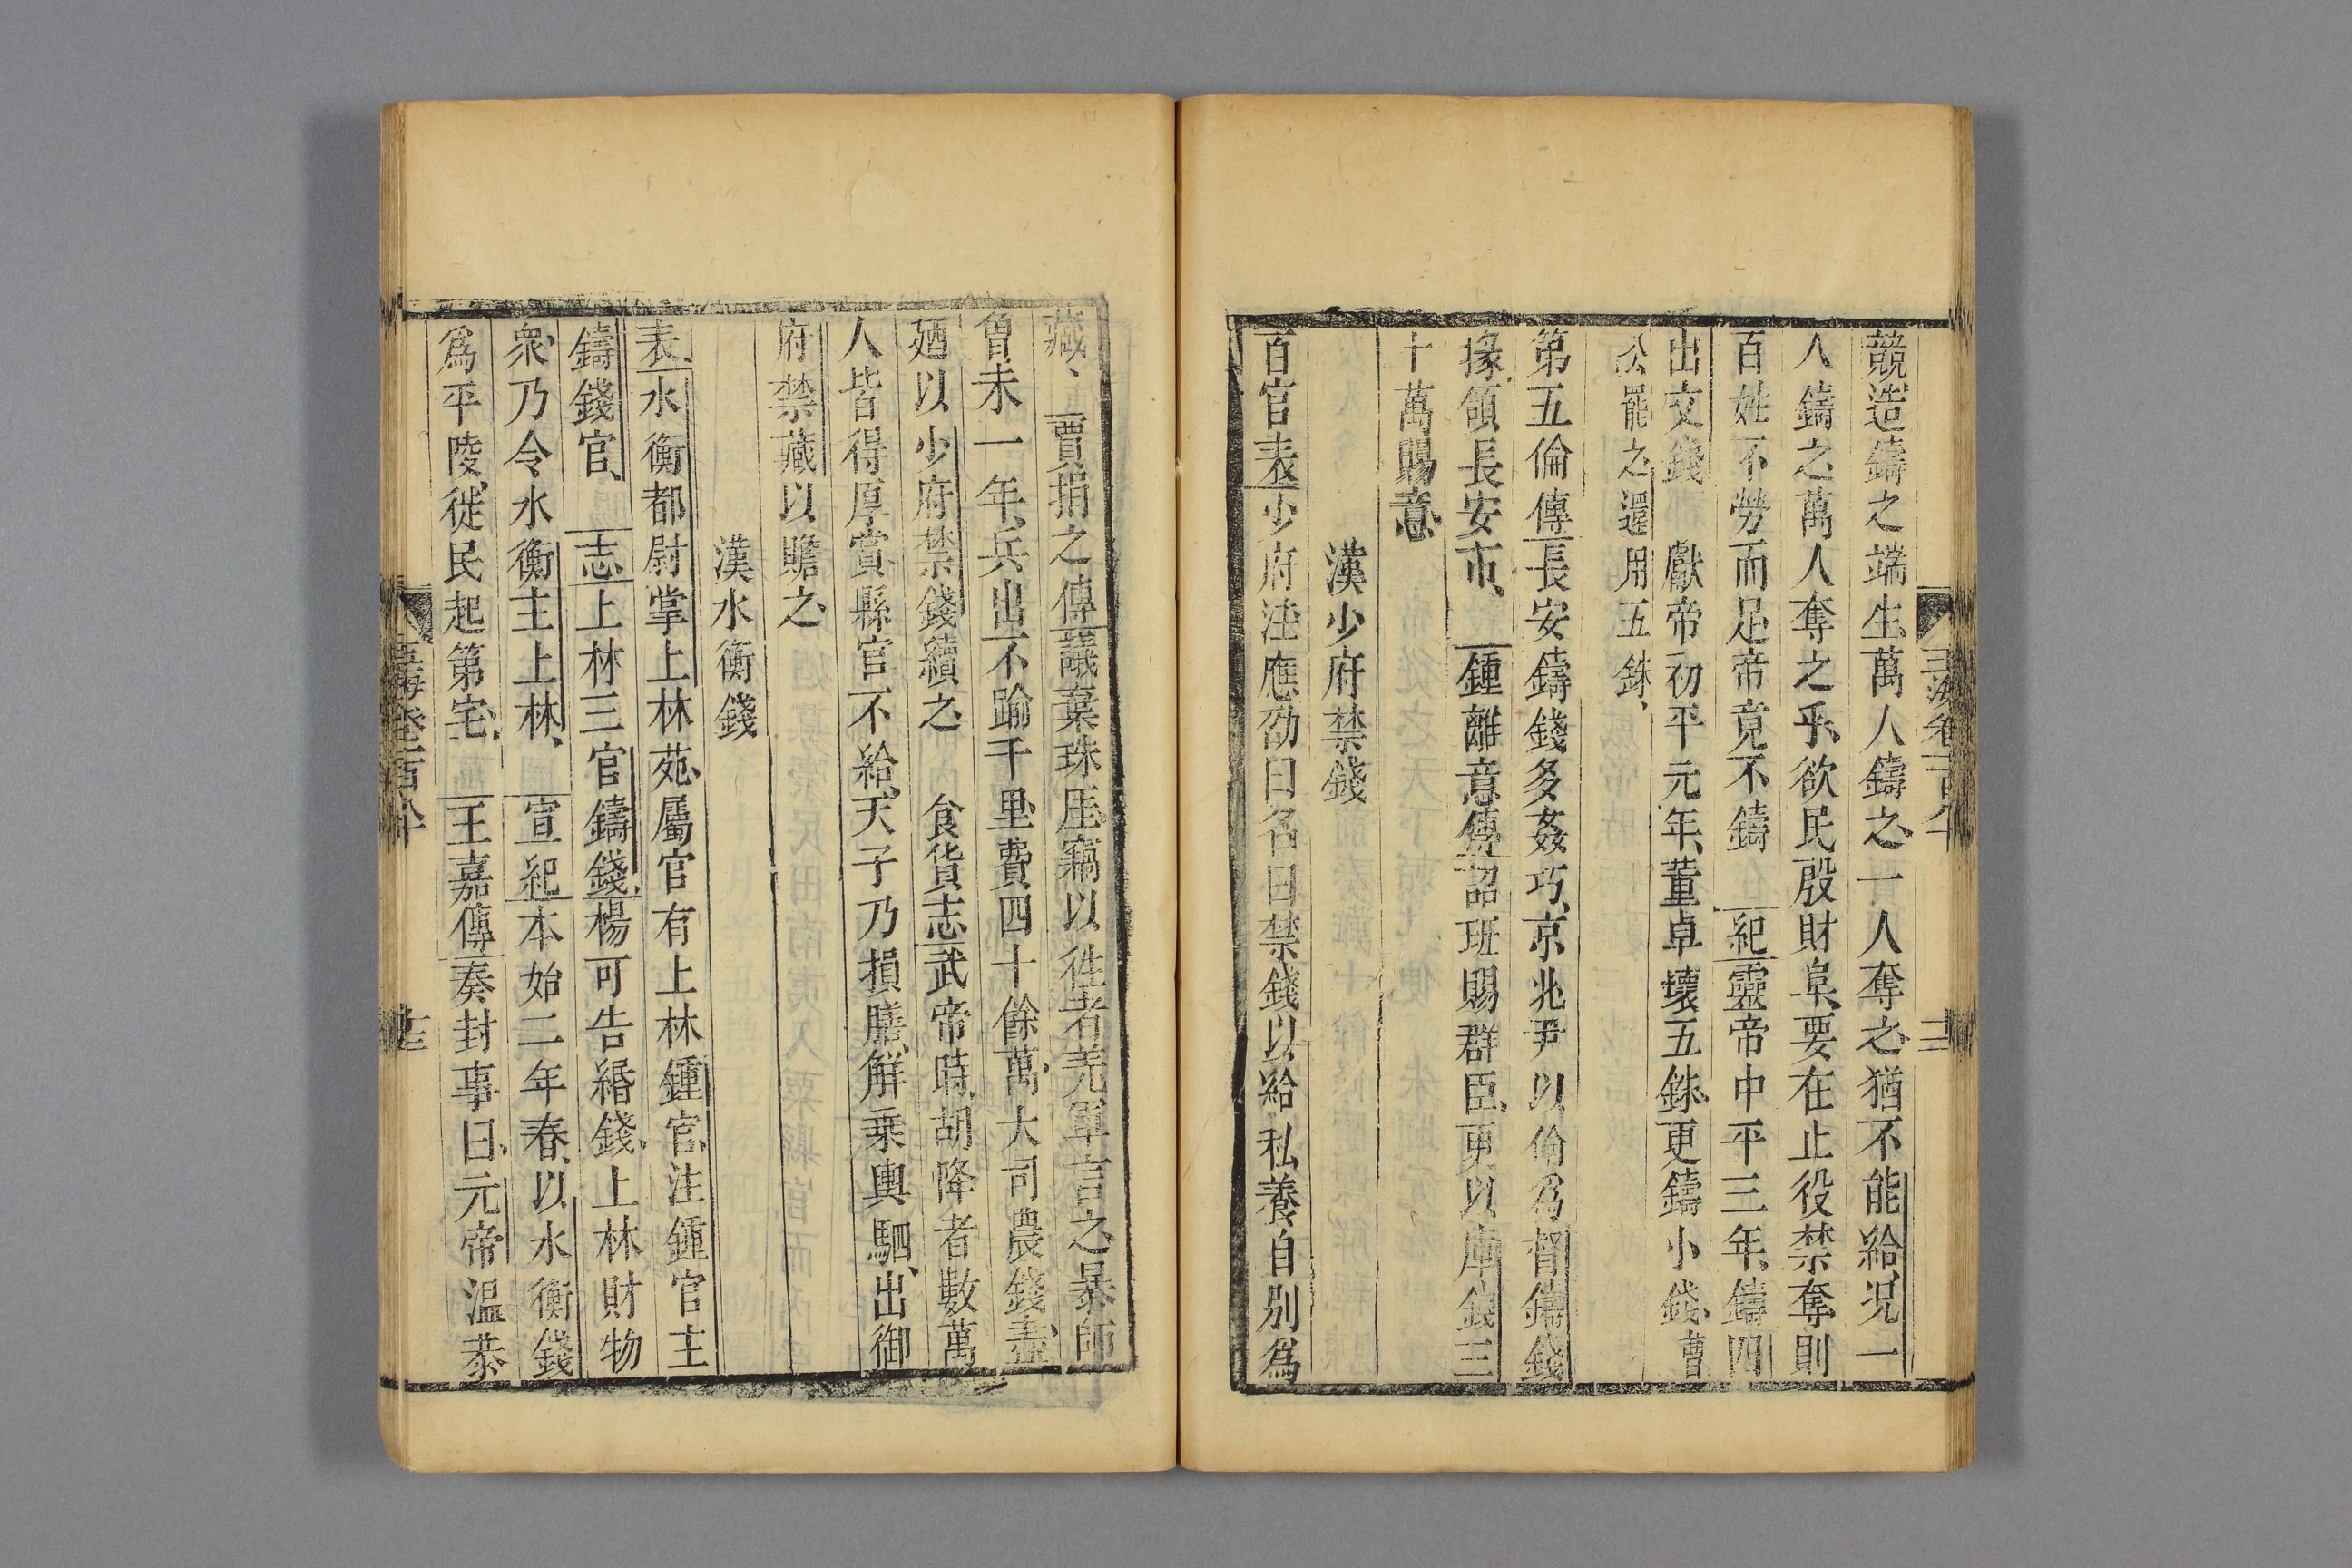 競造鑄之端生萬人鑄之一人奪之猶不能給況一
人鑄之萬人奪之乎欲民殷財阜要在止役禁奪則
百姓不勞而足帝竟不鑄 紀靈帝中平三年鑄四
出文錢 獻帝初平元年董卓壞五銖更鑄小錢曹
公罷之還用五銖
第五倫傳長安鑄錢多姦巧京兆尹以倫爲督鑄錢
掾領長安市 鍾離意傳詔班賜群臣更以庫錢三
十萬賜意
漢少府禁錢
百官表少府注應劭曰名曰禁錢以給私養自別爲
藏 賈捐之傳議棄珠厓竊以往者羌軍言之暴師
曾未一年兵出不踰千里費四十餘萬大司農錢盡
廼以少府禁錢續之 食貨志武帝時胡降者數萬
人皆得厚賞縣官不給天子乃損膳解乗輿駟出御
府禁藏以贍之
漢水衡錢
表水衡都尉掌上林苑屬官有上林鍾官注鍾官主
鑄錢官 志上林三官鑄錢楊可告緡錢上林財物
衆乃令水衡主上林 宣紀本始二年春以水衡錢
爲平陵徙民起第宅 王嘉傳奏封事曰元帝溫恭